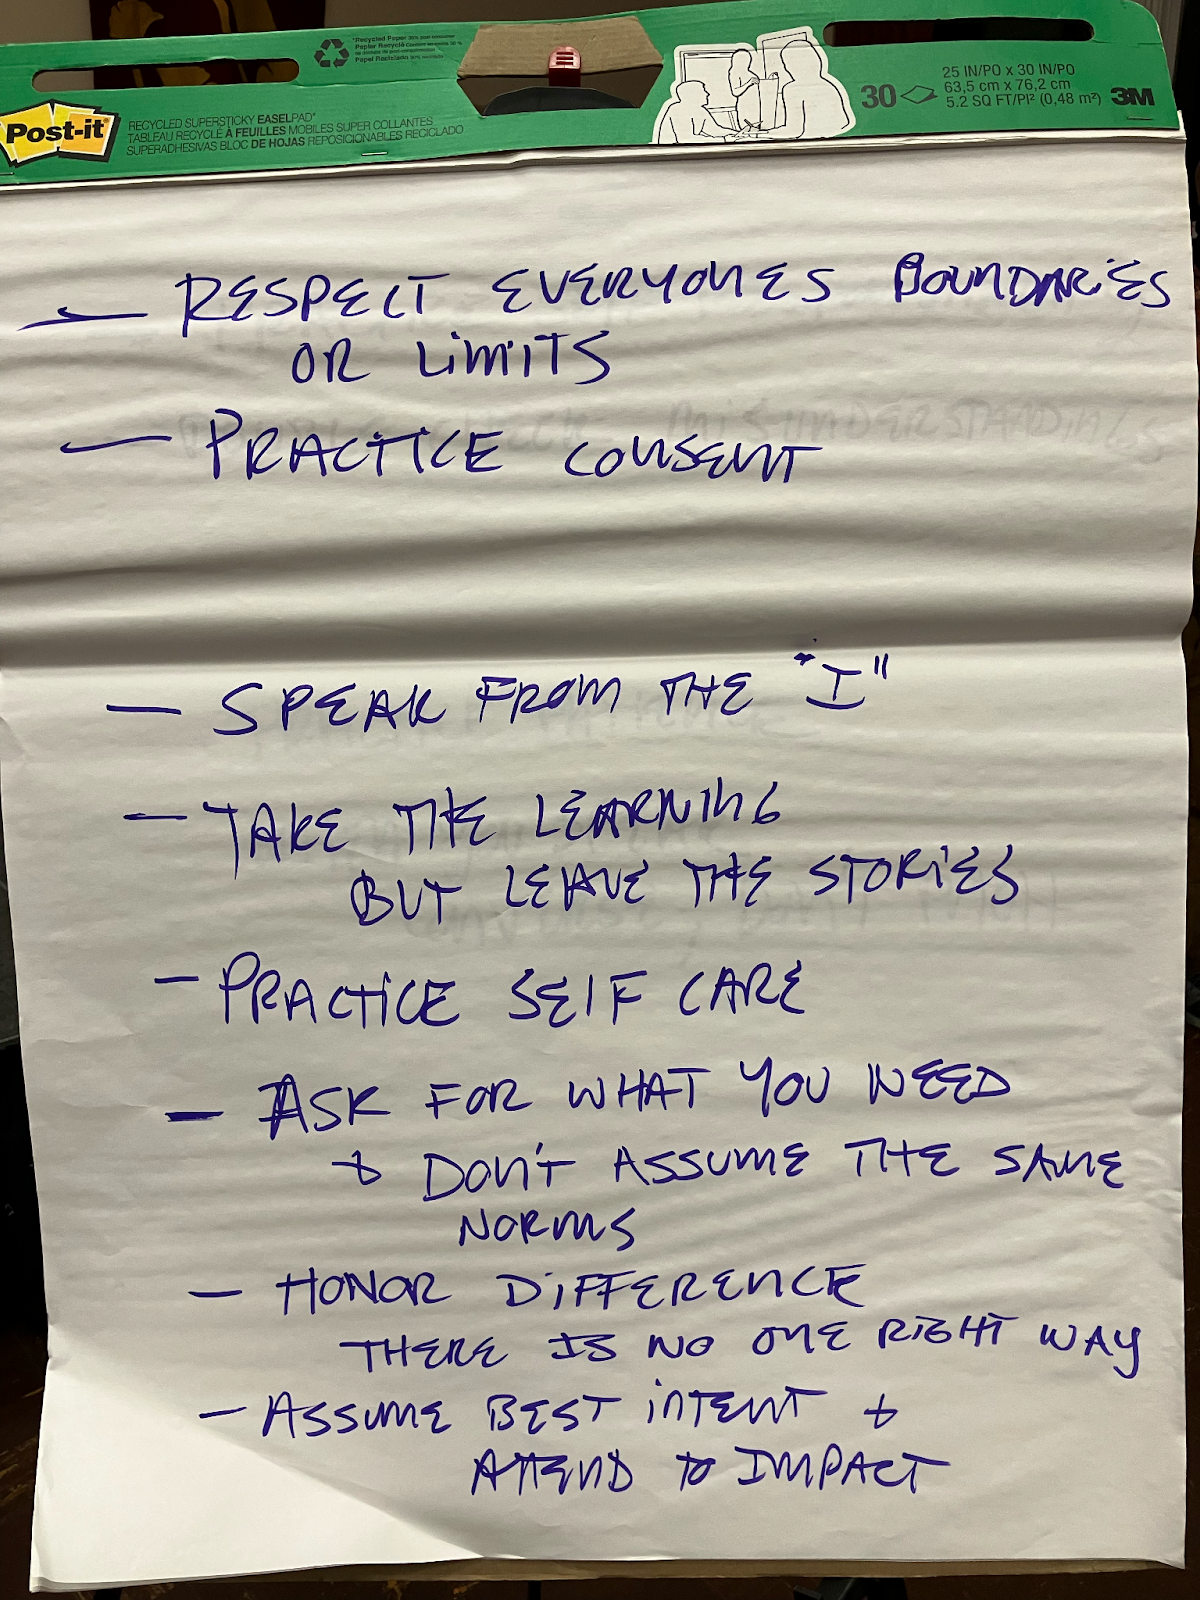 *Recycled Paper 30% post-consumer
Papier Recyclé
Papel Reciclado
Post-it
RECYCLED SUPERSTICKY EASELPAD*
TABLEAU RECYCLÉ À FEUILLES MOBILES SUPER COLLANTES
SUPERADHESIVAS BLOC DE HOJAS REPOSICIONABLES RECICLADO
30
25 IN/PO x 30 IN/PO
63,5 cm x 76,2 cm
5.2 SQ FT/PI² (0,48 m²)
3M
— RESPECT EVERYONES BOUNDARIES
OR LIMITS
— PRACTICE CONSENT
MISUNDERSTANDINGS
— SPEAK FROM THE "I"
— TAKE THE LEARNING
BUT LEAVE THE STORIES
— PRACTICE SELF CARE
— ASK FOR WHAT YOU NEED
+ DON'T ASSUME THE SAME
NORMS
— HONOR DIFFERENCE
THERE IS NO ONE RIGHT WAY
— ASSUME BEST INTENT +
ATTEND TO IMPACT